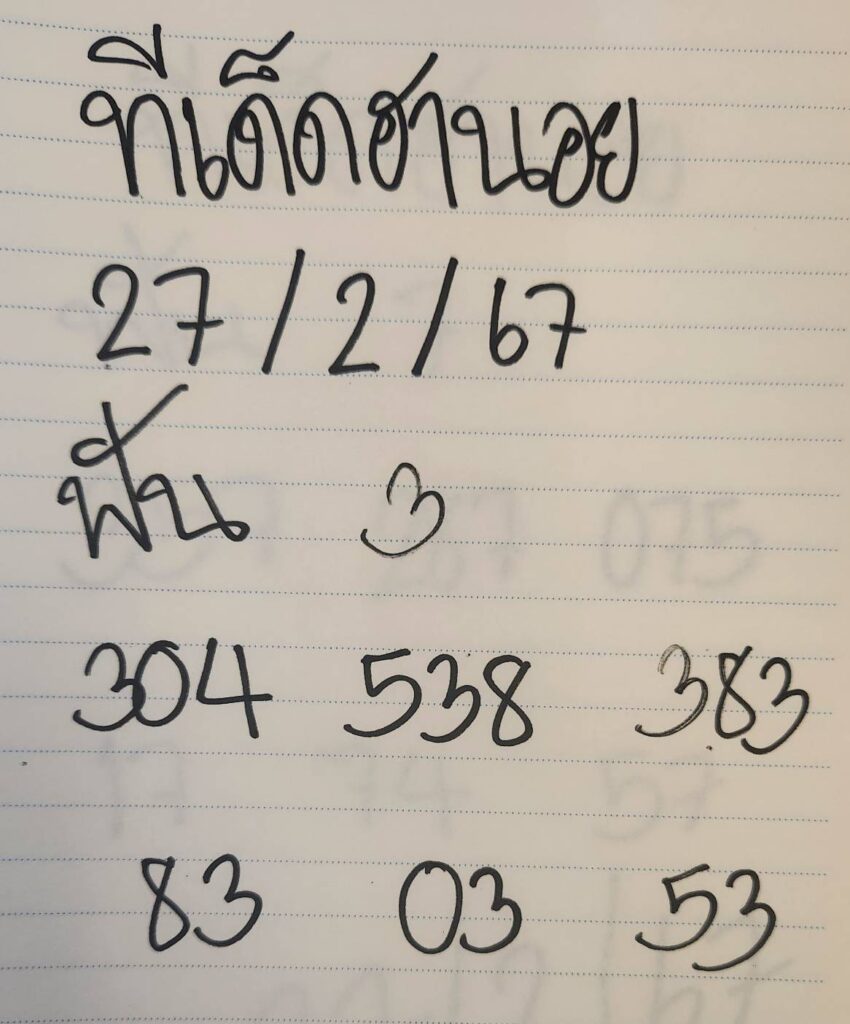 ทีเด็ดฮานอย
27/2/67
ฟัน 3
304 538 383
83 03 53